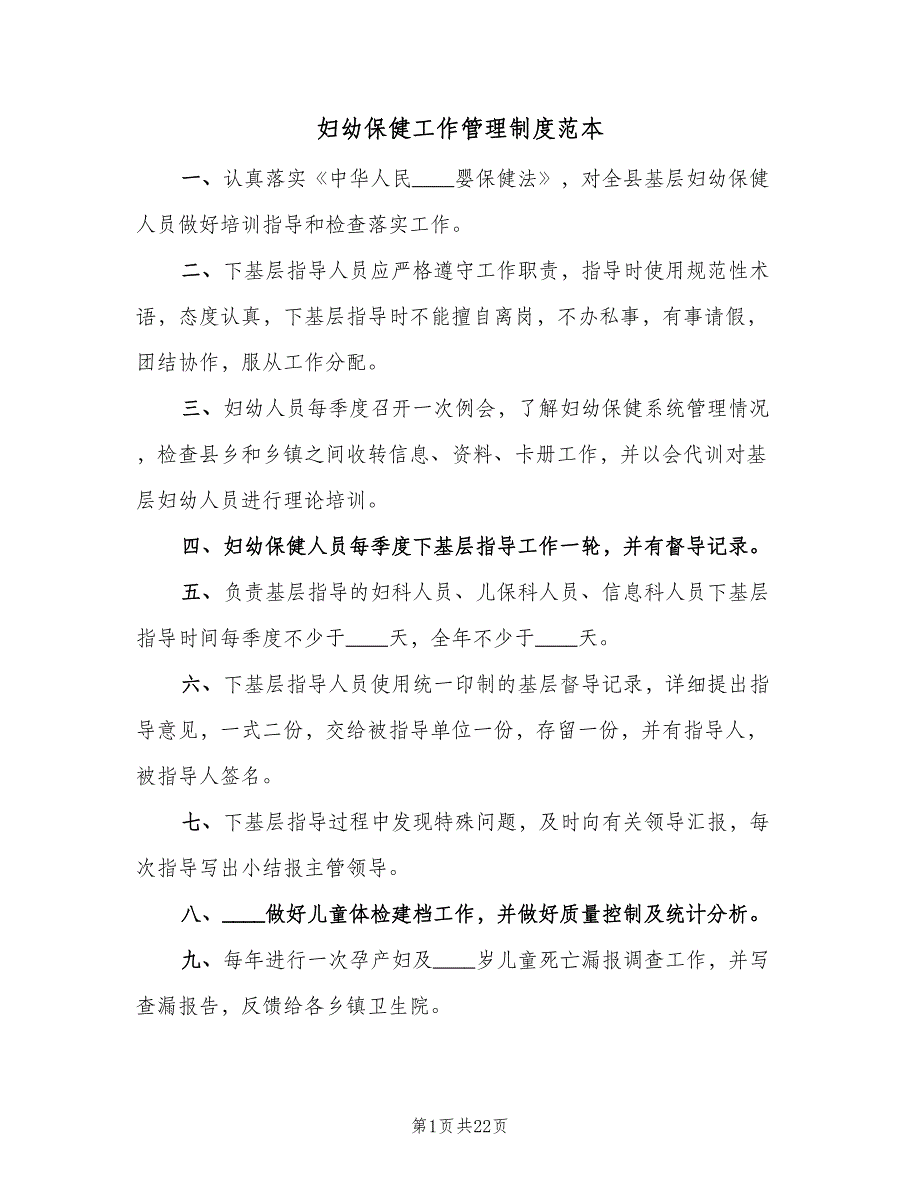 妇幼保健工作管理制度范本
一、认真落实《中华人民____婴保健法》，对全县基层妇幼保健
人员做好培训指导和检查落实工作。
二、下基层指导人员应严格遵守工作职责，指导时使用规范性术
语，态度认真，下基层指导时不能擅自离岗，不办私事，有事请假，
团结协作，服从工作分配。
三、妇幼人员每季度召开一次例会，了解妇幼保健系统管理情况
，检查县乡和乡镇之间收转信息、资料、卡册工作，并以会代训对基
层妇幼人员进行理论培训。
四、妇幼保健人员每季度下基层指导工作一轮，并有督导记录。
五、负责基层指导的妇科人员、儿保科人员、信息科人员下基层
指导时间每季度不少于____天，全年不少于____天。
六、下基层指导人员使用统一印制的基层督导记录，详细提出指
导意见，一式二份，交给被指导单位一份，存留一份，并有指导人，
被指导人签名。
七、下基层指导过程中发现特殊问题，及时向有关领导汇报，每
次指导写出小结报主管领导。
八、____做好儿童体检建档工作，并做好质量控制及统计分析。
九、每年进行一次孕产妇及____岁儿童死亡漏报调查工作，并写
查漏报告，反馈给各乡镇卫生院。
第1页共22页